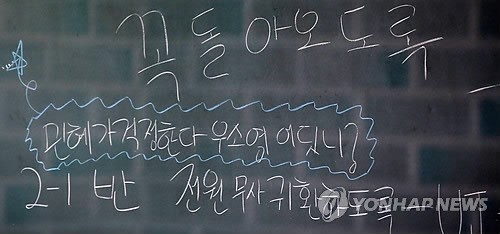 꼭 돌아오도록
민혜가걱정한다 우소영 어딨니?
2-1 반 전원 무사귀환하도록
YONHAP NEWS